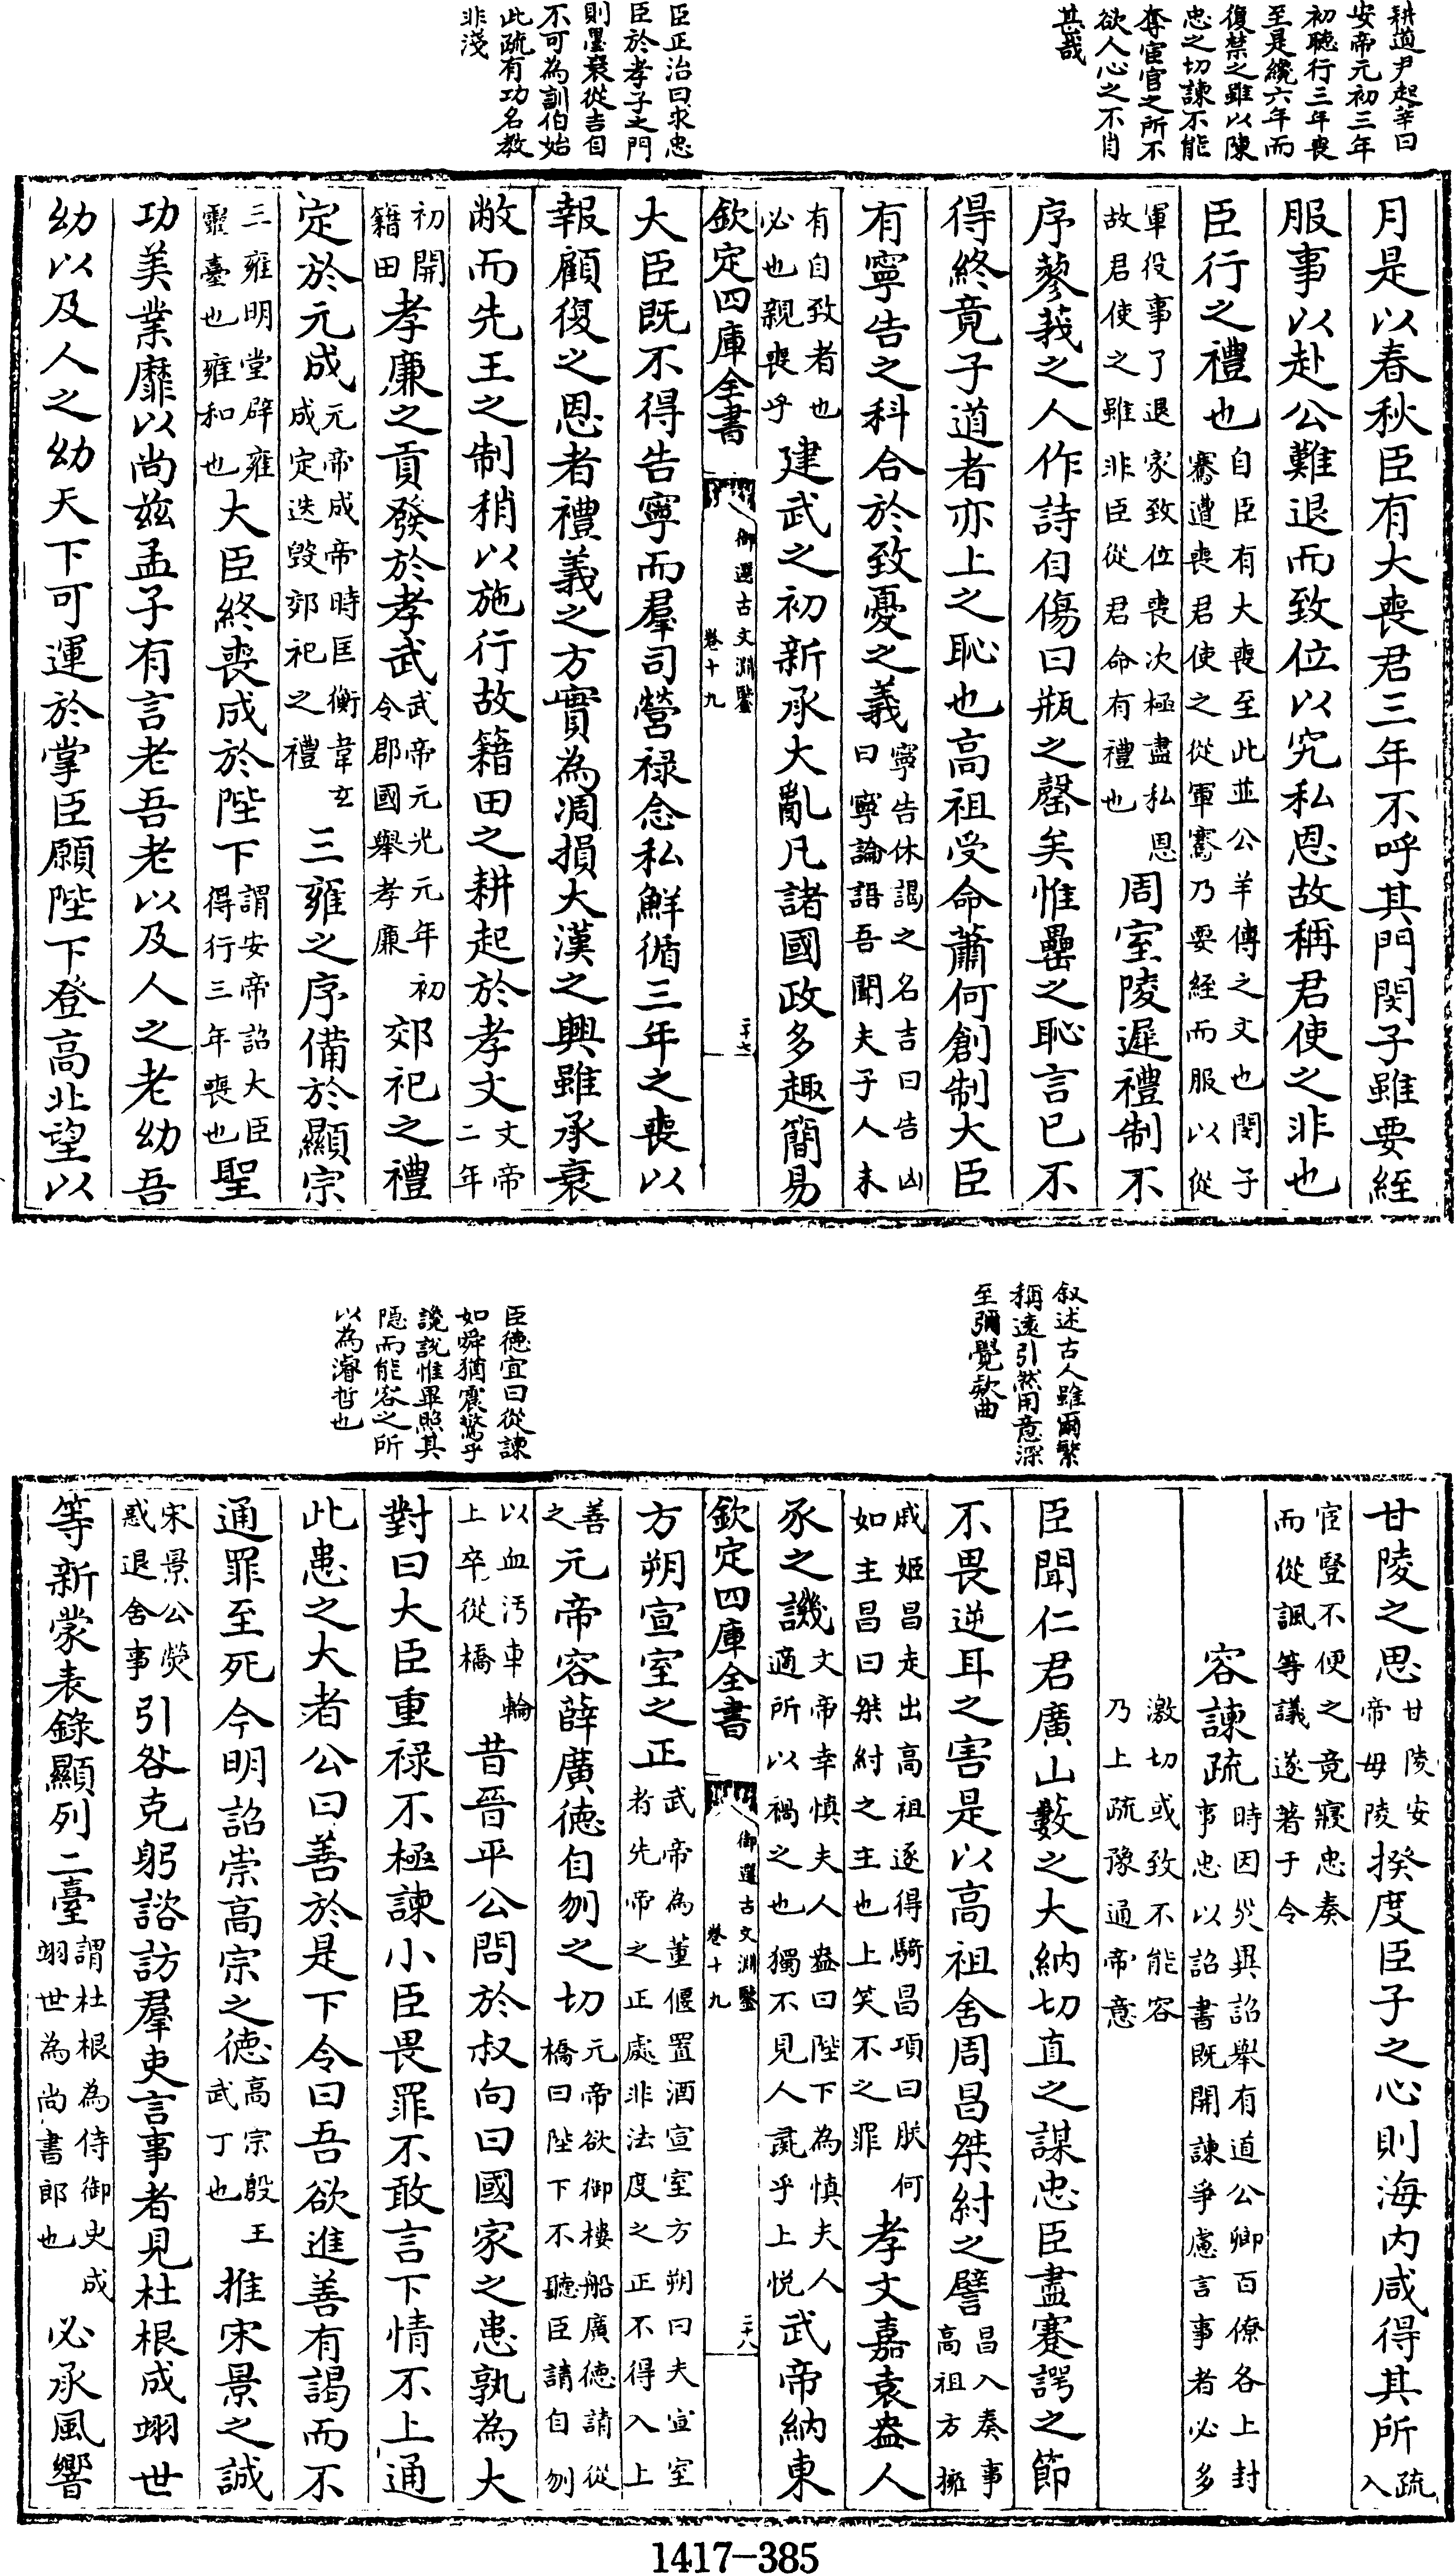 耕道尹起莘曰
安帝元初三年
初聽行三年喪
至是纔六年而
復禁之雖以陳
忠之切諫不能
奪宦官之所不
欲人心之不肖
甚哉
臣正治曰求忠
臣於孝子之門
則墨衰從吉自
不可為訓伯始
此疏有功名教
非淺
月是以春秋臣有大喪君三年不呼其門閔子雖要絰
服事以赴公難退而致位以究私恩故稱君使之非也
臣行之禮也自臣有大喪至此並公羊傳之文也閔子騫遭喪君使之從軍騫乃要絰而服以從
軍役事了退家致位喪次極盡私恩故君使之雖非臣從君命有禮也周室陵遲禮制不
序蓼莪之人作詩自傷曰瓶之罄矣惟罍之恥言已不
得終竟子道者亦上之恥也高祖受命蕭何創制大臣
有寧告之科合於致憂之義寧告休謁之名吉曰告凶曰寧論語吾聞夫子人未
有自致者也必也親喪乎建武之初新承大亂凡諸國政多趣簡易
欽定四庫全書 御選古文淵鑒 卷十九 二十七
大臣既不得告寧而羣司營祿念私鮮循三年之喪以
報顧復之恩者禮義之方實為凋損大漢之興雖承衰
敝而先王之制稍以施行故籍田之耕起於孝文文帝二年
初開籍田孝廉之貢發於孝武武帝元光元年初令郡國舉孝廉郊祀之禮
定於元成元帝成帝時匡衡韋玄成定迭毀郊祀之禮三雍之序備於顯宗
三雍明堂辟雍靈臺也雍和也大臣終喪成於陛下謂安帝詔大臣得行三年喪也聖
功美業靡以尚茲孟子有言老吾老以及人之老幼吾
幼以及人之幼天下可運於掌臣願陛下登高北望以
叙述古人雖爾繁
稱遠引然用意深
至彌覺欵曲
臣德宜曰從諫
如舜猶震驚乎
讒說惟畢照其
隱而能容之所
以為濬哲也
甘陵之思甘陵安帝母陵揆度臣子之心則海內咸得其所疏入
宦豎不便之竟寢忠奏而從諷等議遂著于令
容諫疏時因災異詔舉有道公卿百僚各上封事忠以詔書既開諫爭慮言事者必多
激切或致不能容乃上疏豫通帝意
臣聞仁君廣山藪之大納切直之謀忠臣盡謇諤之節
不畏逆耳之害是以高祖舍周昌桀紂之譬昌入奏事高祖方擁
戚姬昌走出高祖逐得騎昌項曰朕何如主昌曰桀紂之主也上笑不之罪孝文嘉袁盎人
豕之譏文帝幸慎夫人盎曰陛下為慎夫人適所以禍之也獨不見人彘乎上悅武帝納東
欽定四庫全書 御選古文淵鑒 卷十九 二十八
方朔宣室之正武帝為董偃置酒宣室方朔曰夫宣室者先帝之正處非法度之正不得入上
善之元帝容薛廣德自刎之切元帝欲御樓船廣德請從橋曰陛下不聽臣請自刎
以血汚車輪上卒從橋昔晉平公問於叔向曰國家之患孰為大
對曰大臣重祿不極諫小臣畏罪不敢言下情不上通
此患之大者公曰善於是下令曰吾欲進善有謁而不
通罪至死今明詔崇高宗之德高宗殷王武丁也推宋景之誠
宋景公熒惑退舍事引咎克躬諮訪羣吏言事者見杜根成翊世
等新蒙表錄顯列二臺謂杜根為侍御史成翊世為尚書郎也必承風響
1417-385